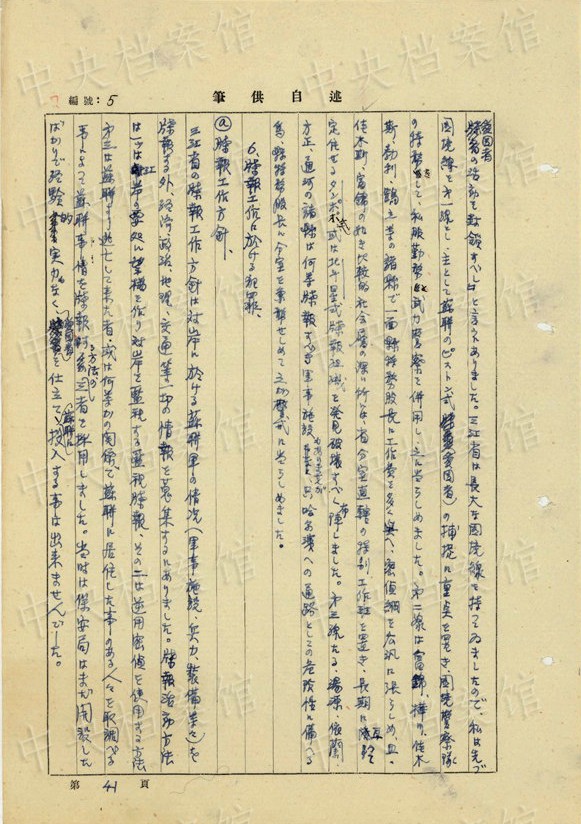 述自供筆
編號:5
愛国者
の活動を封鎖すべし」と言ふにありました。三江省は長大な国境線を持つてゐましたので、私は先づ
国境線を第一線とし、主として蘇聯のピストン式(愛国者)の捕捉に重点を置き、国境警察隊
の特務をして私服勤務と武力警察を併用し、之に当らしめました。第二線は富錦、樺川、佳木
斯、勃利、鶴立等の諸縣で一面縣特務股長に工作費を多く與へ、密偵網を広汎に張らしめ、且
佳木斯、富錦の如き比較的社会層の深い所には、省分室直轄の特別工作班を置き、長期に
定住せるタンポポ式或は北斗星式諜報組織を発見破壊すべく布陣しました。第三線たる湯原、依蘭、
方正、通河の諸縣は何等諜報すべき軍事施設もありませんが、只哈爾濱への通路としての危険性に備へる
為、縣特務股長に分室を兼務せしめて之が警戒に当らしめました。
6.諜報工作に於ける犯罪、
ⓐ諜報工作方針、
三江省の諜報工作方針は対岸に於ける蘇聯軍の情况(軍事施設、兵力、装備、等々)を
諜報する外、政治、経済、地理、交通等一切の情報を蒐集するにありました。諜報活動方法
は一つは江岸の要処に望楼を作り対岸を監視する監視諜報、その二は逆用密偵を使用する方法
第三は蘇聯より逃亡して来た者、或は何等かの関係で蘇聯に居住した事のある人々を取調べる
事によつて蘇聯事情を諜報する方法の三者を採用しました。当時は保安局はまだ開設した
ばかりで経験的実力もなく、(愛国者)を仕立て(蘇聯に)投入する事は出来ませんでした。
第 41 頁
中央档案馆